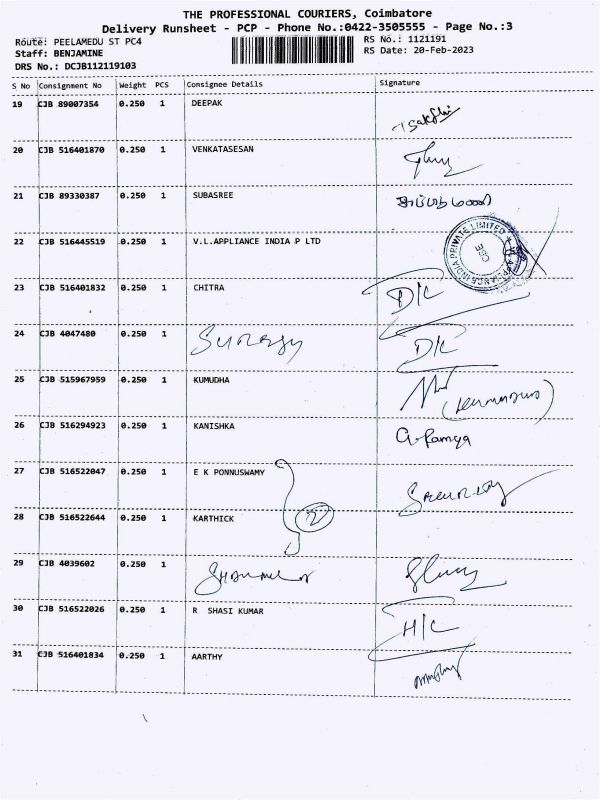 THE PROFESSIONAL COURIERS, Coimbatore
Delivery Runsheet - PCP - Phone No.:0422-3505555 - Page No.:3
Route: PEELAMEDU ST PC4
RS No.: 1121191
Staff: BENJAMINE
RS Date: 20-Feb-2023
DRS No.: DCJB112119103
S No Consignment No Weight PCS Consignee Details Signature
19 CJB 89007354 0.250 1 DEEPAK
20 CJB 516401870 0.250 1 VENKATASESAN
21 CJB 89330387 0.250 1 SUBASREE
22 CJB 516445519 0.250 1 V.L.APPLIANCE INDIA P LTD
APPLIANCE INDIA PRIVATE LIMITED
CBE
23 CJB 516401832 0.250 1 CHITRA D/C
24 CJB 4047480 0.250 1 D/C
25 CJB 515967959 0.250 1 KUMUDHA
26 CJB 516294923 0.250 1 KANISHKA G. Ramya
27 CJB 516522047 0.250 1 E K PONNUSWAMY
28 CJB 516522644 0.250 1 KARTHICK
29 CJB 4039602 0.250 1
30 CJB 516522026 0.250 1 R SHASI KUMAR H/C
31 CJB 516401834 0.250 1 AARTHY